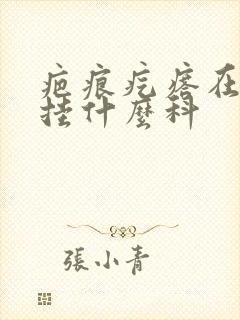 疤痕疙瘩在
挂什麼科
張小青